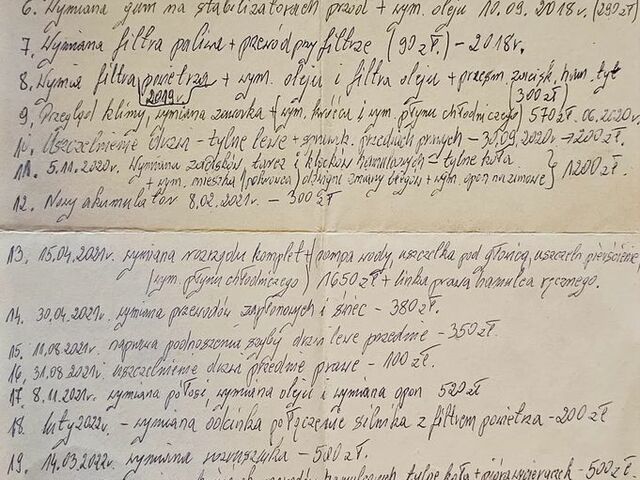 6. Wymiana gum na stabilizatorach przód + wym. oleju 10.09.2018r. (290zł)
7. Wymiana filtra paliwa + przewód przy filtrze (90zł.) – 2018r.
8. Wymia filtra powietrza + wym. oleju i filtra oleju + przesm. zacisk. ham. tył
2019r. (300zł)
9. Przegląd klimy, wymiana zaworka + (wym. króćca i wym. płynu chłodniczego) 570zł. 06.2020r.
10. Uszczelnienie drzwi – tylne lewe + przednich prawych – 30.09.2020r → 200zł.
11. 5.11.2020r. Wymiana zacisków, tarcz i klocków hamulcowych – tylne koła
+ wym. mieszka (pokrowca) dźwigni zmiany biegów + wym. opon na zimowe } 1200zł.
12. Nowy akumulator 8.02.2021r. – 300zł
13. 15.04.2021r. wymiana rozrządu komplet + (pompa wody, uszczelka pod głowicą, uszczeln. pierścienie
(wym. płynu chłodniczego) 1650zł + linka prawa hamulca ręcznego.
14. 30.04.2021r. wymiana przewodów zapłonowych i świec – 380zł.
15. 11.08.2021r. naprawa podnoszenia szyby drzwi lewe przednie – 350zł
16. 31.08.2021r. uszczelnienie drzwi przednie prawe – 100zł.
17. 8.11.2021r. wymiana półosi, wymiana oleju i wymiana opon 520zł
18. luty 2022r. – wymiana odcinka połączenie silnika z filtrem powietrza – 200zł
19. 14.03.2022r. wymiana rozrusznika – 500zł.
przewodów hamulcowych tylne koła + pióra wycieraczek – 500zł.